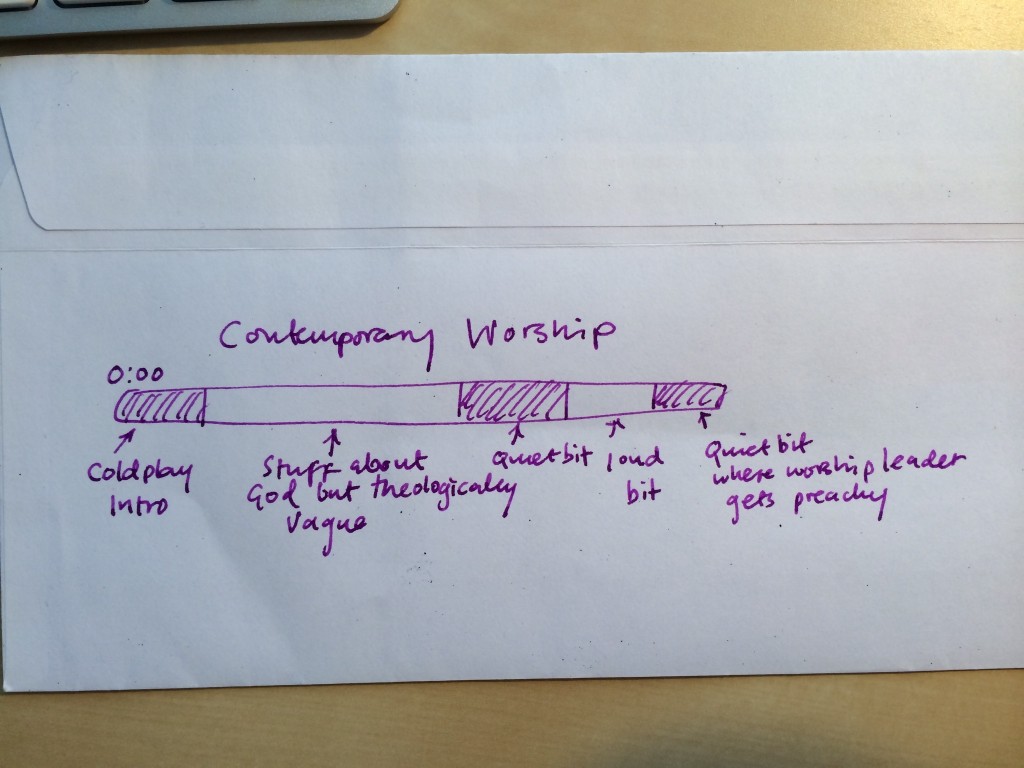 Contemporary Worship
0:00
Coldplay
Intro
Stuff about
God but theologically
vague
Quiet bit
loud
bit
Quiet bit
where worship leader
gets preachy